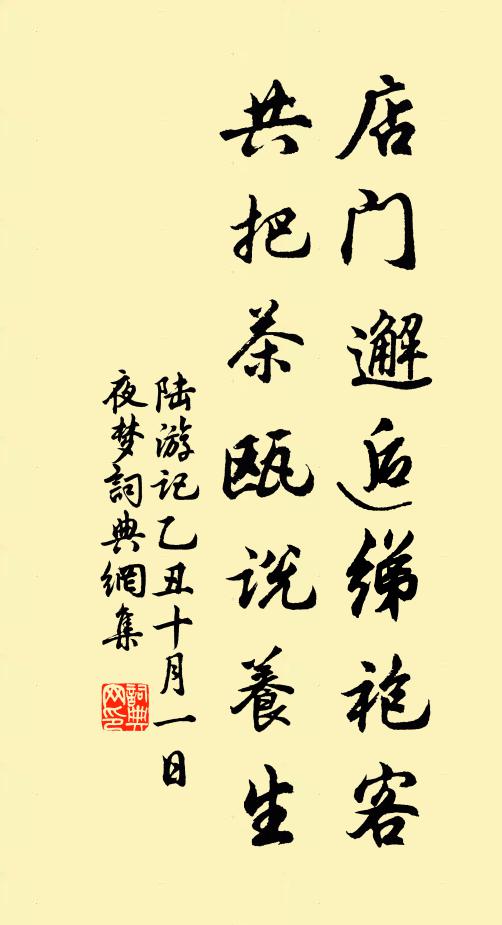 店门邂逅绨袍客
共把茶瓯说養生
陆游记乙丑十月一日
夜梦詞典網集
詞典
网印